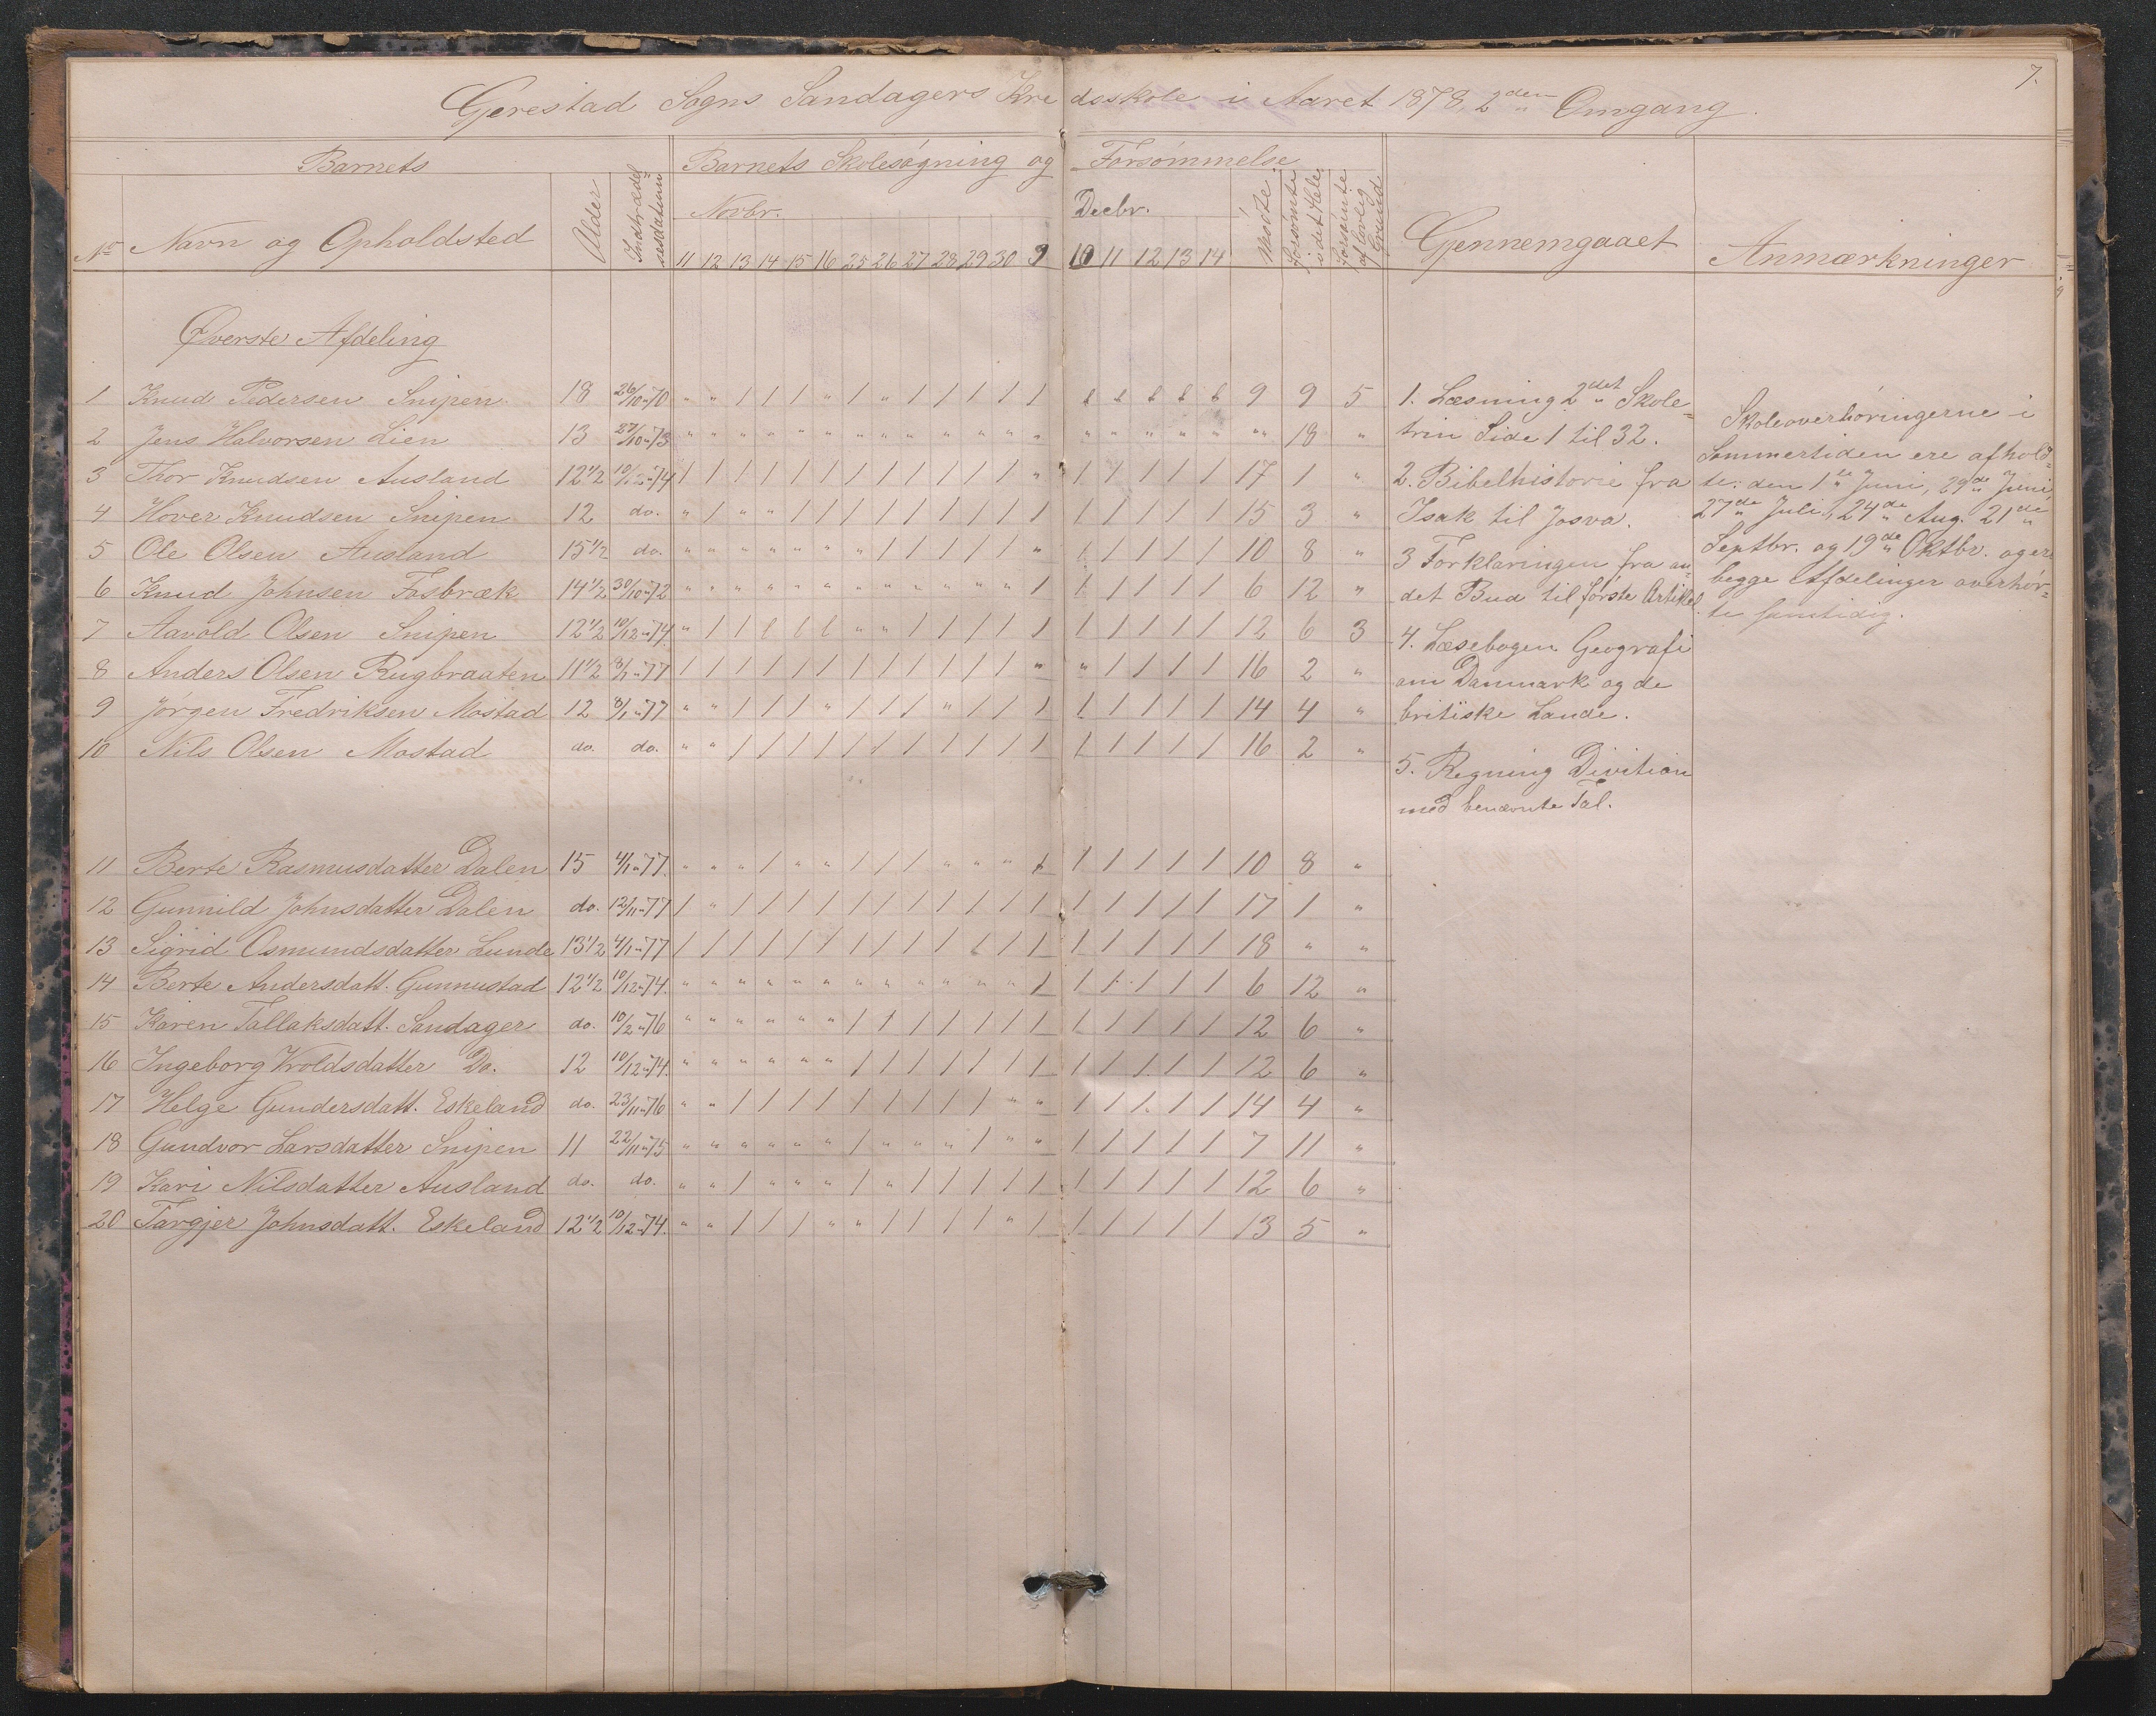 7.
Gjerestad Sogns Sandagers Kredsskole i Aaret 1878, 2den Omgang.
Barnets
Barnets Skolesøgning og Forsømmelse
No Navn og Opholdsted
Alder
Indtrædelsesdatum
Novbr.
Decbr.
11 12 13 14 15 16 25 26 27 28 29 30 9 10 11 12 13 14
Mødte
Forsømte i det Hele
Forsømte af lovlig Grund
Gjennemgaaet
Anmærkninger
Øverste Afdeling
1 Knud Pedersen Snipen 18 26/10 " 70 " " / / / " / " / / / / / l l l l l 9 9 5
2 Jens Halvorsen Lien 13 27/10 " 73 " " " " " " " " " " " " " " " " " " " 18 "
3 Thor Knudsen Ausland 12 1/2 10/12 " 74 / / / / / / / / / / / / " / / / / / 17 1 "
4 Hover Knudsen Snipen 12 do. " / " " / / / / / / / / / / / / / / 15 3 "
5 Ole Olsen Ausland 15 1/2 do. " " " " " " " / / / / / " / / / / / 10 8 "
6 Knud Johnsen Fosbræk 14 1/2 30/10 " 72 " " " " " " " " " " " " / / / / / / 6 12 "
7 Aavold Olsen Snipen 12 1/2 10/12 " 74 " / / l l l " " / / / / / / / / / / 12 6 3
8 Anders Olsen Rugbraaten 11 1/2 8/1 " 77 / / / / / / / / / / / / " " / / / / 16 2 "
9 Jørgen Fredriksen Mostad 12 8/1 " 77 " " / / / " / / / " / / / / / / / / 14 4 "
10 Nils Olsen Mostad do. do. " " / / / / / / / / / / / / / / / / 16 2 "
11 Berte Rasmusdatter Dalen 15 4/1 " 77. " " " / " " / / / " " " / / / / / / 10 8 "
12 Gunnild Johnsdatter Dalen do. 12/11 " 77 / " / / / / / / / / / / / / / / / / 17 1 "
13 Sigrid Osmundsdatter Lunde 13 1/2 4/1 " 77 / / / / / / / / / / / / / / / / / / 18 " "
14 Berte Andersdatt. Gunnustad 12 1/2 10/12 " 74. " " " " " " " " " " " " / / / / / / 6 12 "
15 Karen Tallaksdatt. Sandager do. 10/2 " 76 " " " " " " / / / / / / / / / / / / 12 6 "
16 Ingeborg Wroldsdatter Do. 12 10/12 " 74. " " " " " " / / / / / / / / / / / / 12 6 "
17 Helge Gundersdatt. Eskeland do. 23/11 " 76 " " / / / / / / / / / " " / / / / / 14 4 "
18 Gundvor Larsdatter Snipen 11 22/11 " 75 " " " " " " / " " " / " " / / / / / 7 11 "
19 Kari Nilsdatter Ausland do. do. " " / " " " / " / / / / / / / / / / 12 6 "
20 Targjer Johnsdatt. Eskeland 12 1/2 10/12 " 74. " " / / / " " / / / / " / / / / / / 13 5 "
1. Læsning 2det Skole=
trin Side 1 til 32.
2. Bibelhistorie fra
Isak til Josva.
3 Forklaringen fra an=
det Bud til første Artikel.
4. Læsebogen Geografi
om Danmark og de
britiske Lande.
5. Regning Divition
med benævnte Tal.
Skoleoverhøringerne i
Sommertiden ere afhold=
te: den 1te Juni, 29de Juni,
27de Juli, 24de Aug. 21de
Septbr. og 19de Oktbr. og er
begge Afdelinger overhør=
te samtidig.